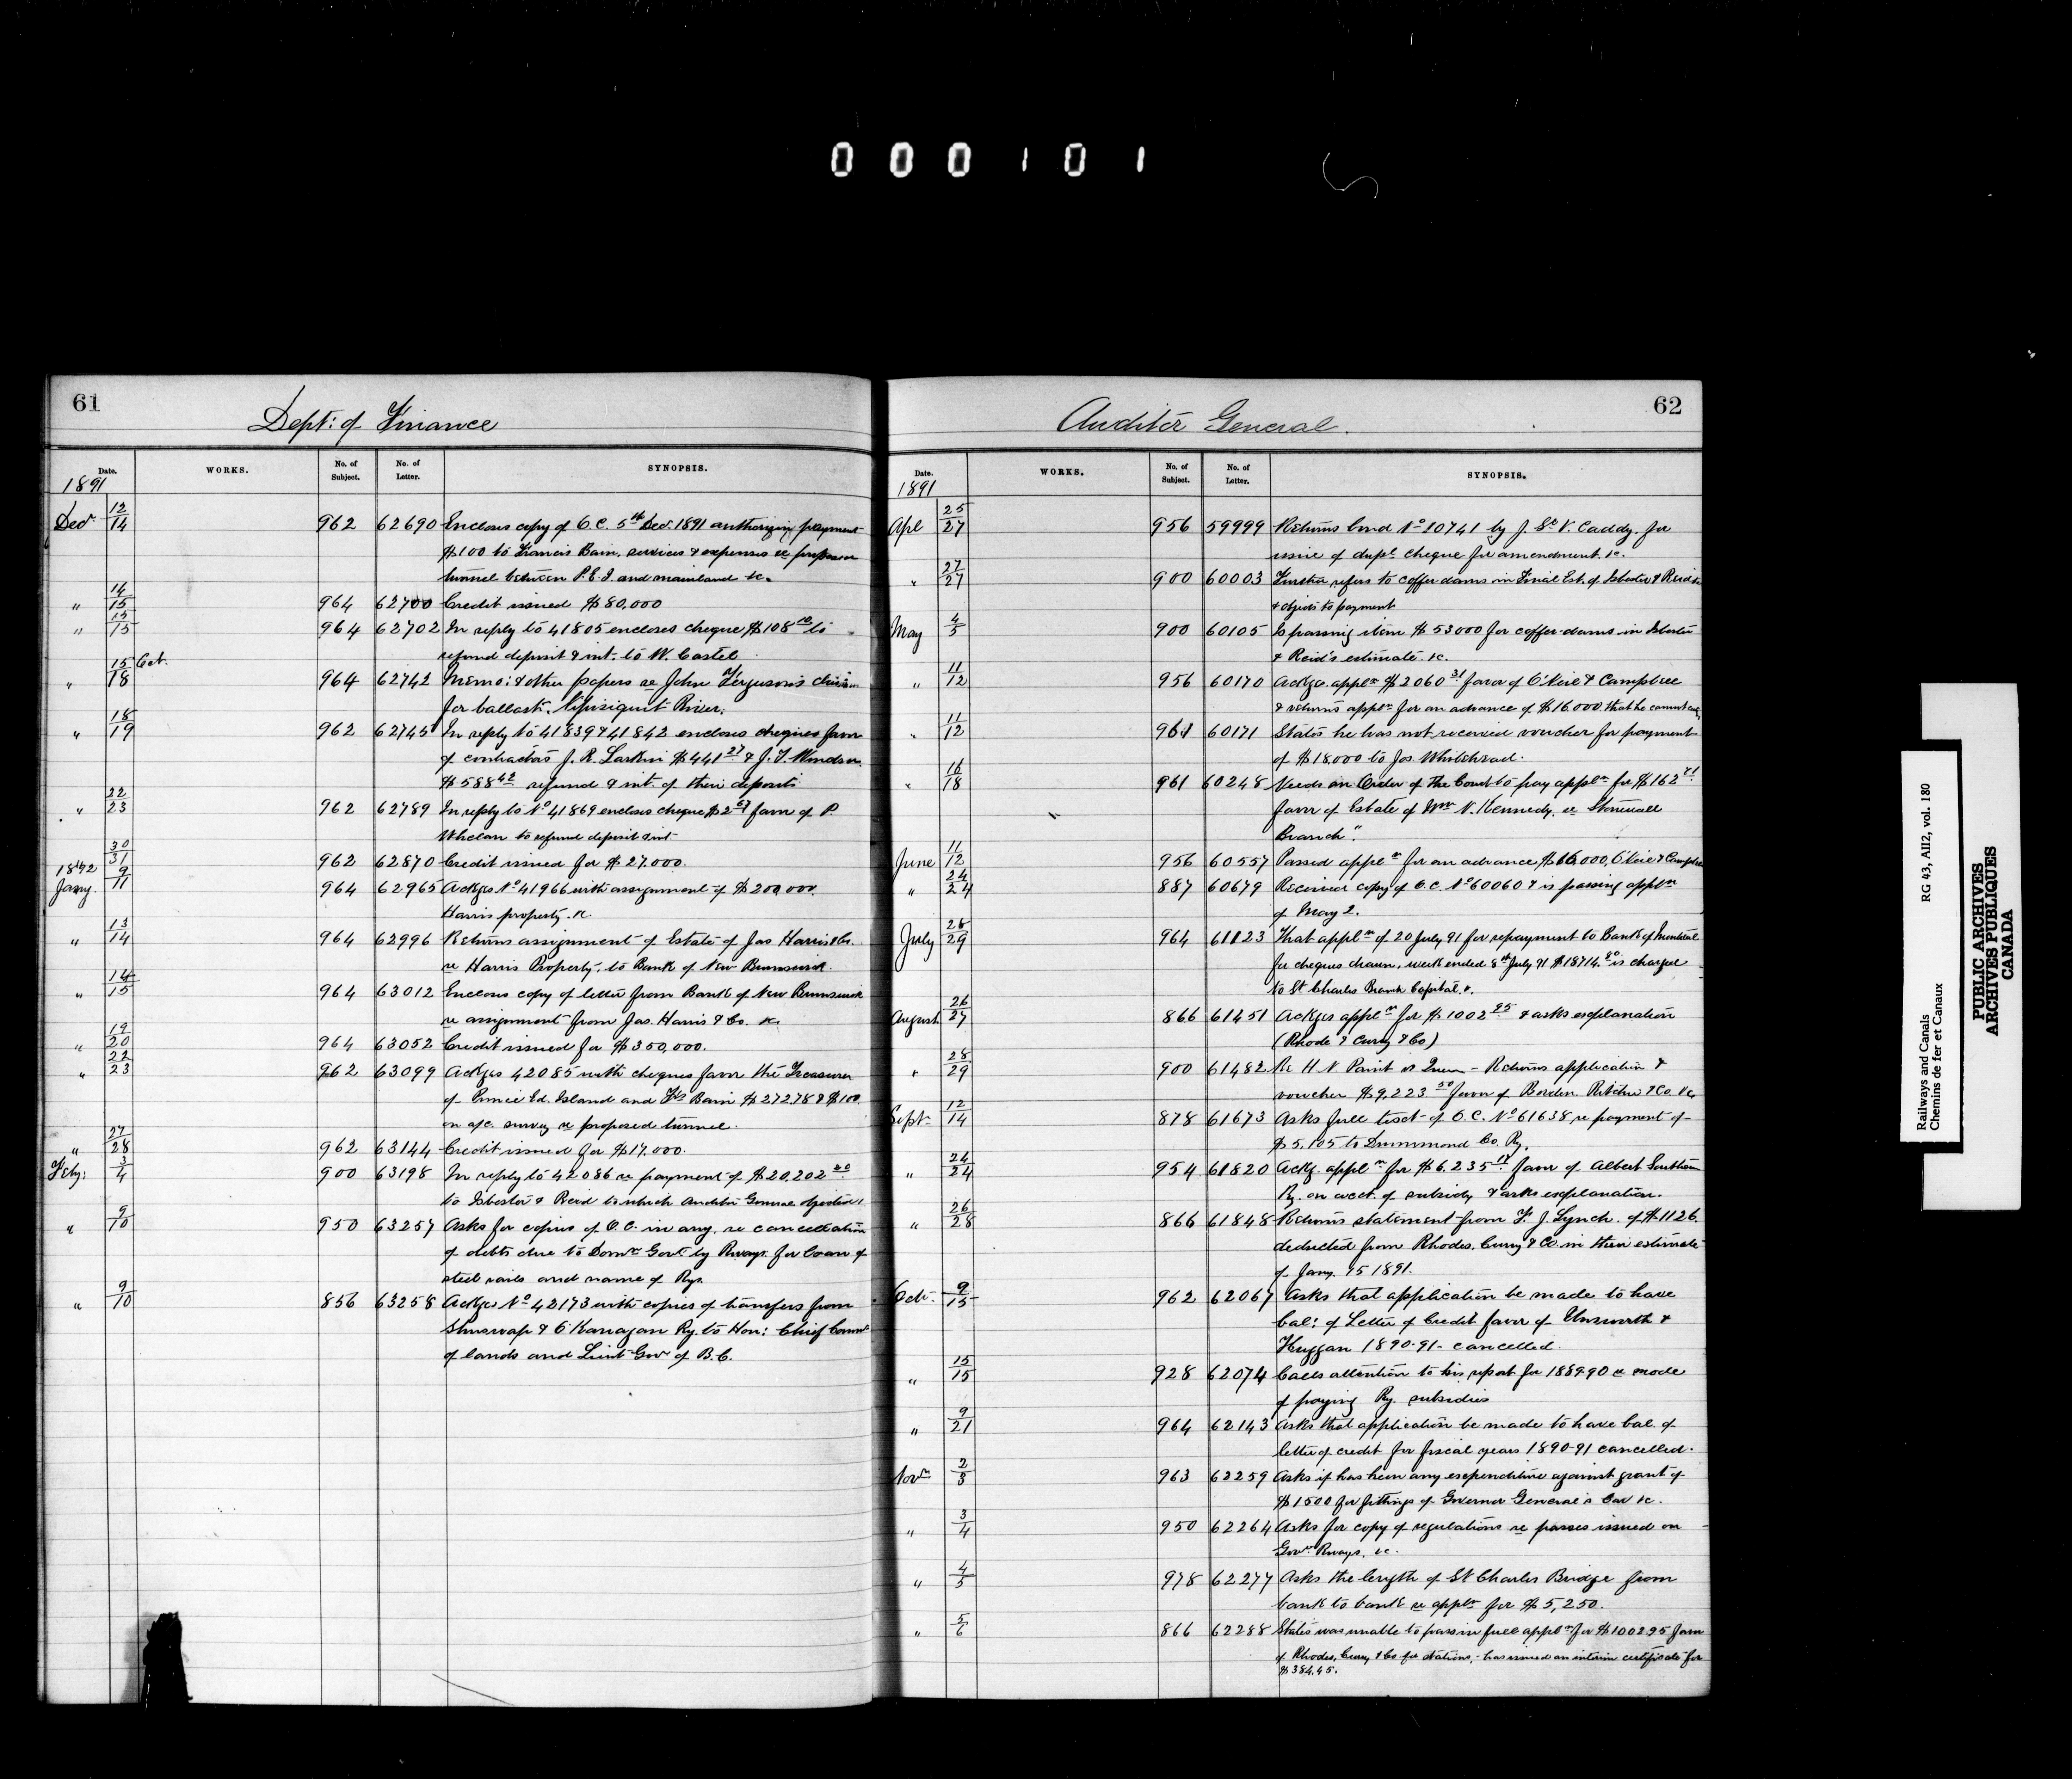 000101
61
Dept: of Finance
Date. WORKS. No. of Subject. No. of Letter. SYNOPSIS.
1891
Decr. 12/14 962 62690 Encloses copy of O.C. 5th Decr. 1891 authorizing payment
$100 to Francis Bain, services & expenses re proposed
tunnel between P.E.I. and mainland &c.
" 14/15 964 62700 Credit issued $80,000
" 15/15 964 62702 In reply to 41805 encloses cheque $108 to
refund deposit & int. to W. Castel
" 15 Oct./18 964 62742 Memo: & other papers re John Ferguson's claim
for ballast, Nipisiguit River.
" 18/19 962 62745 In reply to 41839 & 41842 encloses cheques favor
of contractors J. R. Larkin $441 27 & J. T.
$588 42 refund & int. of their deposits
" 22/23 962 62789 In reply to No 41869 encloses cheque $2 67 favor of P.
Whelan to refund deposit & int
30/31 962 62870 Credit issued for $27,000.
1892
Jany. 9/11 964 62965 Ackges No 41966 with assignment of $200,000.
Harris property. &c.
" 13/14 964 62996 Returns assignment of Estate of Jas Harris & Co.
re Harris Property, to Bank of New Brunswick.
" 14/15 964 63012 Encloses copy of letter from Bank of New Brunswick
re assignment from Jas. Harris & Co. &c.
" 19/20 964 63052 Credit issued for $350,000.
" 22/23 962 63099 Ackges 42085 with cheques favor the Treasurer
of Prince Ed. Island and Fs Bain $272.78 & $100.
on a/c. survey re proposed tunnel.
" 27/28 962 63144 Credit issued for $17,000.
Feby: 3/4 900 63198 In reply to 42086 re payment of $20,202
to Isbester & Reid to which Auditor General objected.
" 9/10 950 63257 Asks for copies of O.C. in any. re cancellation
of debts due to Domn Govt by Rways. for loan of
steel rails and name of Rys.
" 9/10 856 63258 Ackges No 42173 with copies of transfers from
Shuswap & O'Kanagan Ry. to Hon: Chief Commr
of lands and Lieut-Govr of B.C.
62
Auditor General.
Date. WORKS. No. of Subject. No. of Letter. SYNOPSIS.
1891
Apl 25/27 956 59999 Returns bond No 10741 by J. St V. Caddy. for
issue of dupl. cheque for amendment. &c.
" 27/27 900 60003 Further refers to coffer dams in Final Est. of Isbester & Reid
& objects to payment
May 4/5 900 60105 Is passing item $53000 for coffer-dams in Isbester
& Reid's estimate. &c.
" 11/12 956 60170 Ackges. appln $2060 31 favor of O'Neil & Campbell
& returns appln for an advance of $16.000 that he cannot
" 11/12 961 60171 States he has not received voucher for payment
of $18,000 to Jos Whitehead.
" 16/18 961 60248 Needs an Order of the Court to pay appln for $162 41
favor of Estate of Wm N. Kennedy. re Stonewall
Branch".
June 11/12 956 60557 Passed appln for an advance $16,000, O'Neil & Campbell
" 24/24 887 60679 Received copy of O.C. No 60060 & is passing appln
of May 2.
July 28/29 964 61123 That appln of 20 July 91 for repayment to Bank of Montreal
for cheques drawn, week ended 8th July 91 $18714. is charged
to St Charles Branch Capital. &.
August 26/27 866 61451 Ackges appln for $1002 95 & asks explanation
(Rhode & Curry & Co)
" 28/29 900 61482 Re H N Paint vs Queen - Returns application &
voucher $9,223 50 favor of Borden Ritchie & Co. &c,
Sept. 12/14 878 61673 Asks full text of O.C. No 61638, re payment of
$5,105 to Drummond Co Ry.
" 24/24 954 61820 Ackg. appln for $6,235 favor of Albert Southern
Ry. on acct. of subsidy & asks explanation.
" 26/28 866 61848 Returns statement from F. J. Lynch. of $1126.
deducted from Rhodes, Curry & Co. in their estimate
of Jany. 15 1891.
Octr. 9/15 962 62067 Asks that application be made to have
bal: of Letter of Credit favor of Unsworth &
Huggan 1890-91- cancelled.
" 15/15 928 62074 Calls attention to his report for 1889-90 re mode
of paying Ry. subsidies
" 9/21 964 62143 Asks that application be made to have bal. of
letter of credit for fiscal years 1890-91 cancelled.
Novr 2/3 963 62259 Asks if has been any expenditure against grant of
$1500 for fittings of Governor General's Car &c.
" 3/4 950 62264 Asks for copy of regulations re passes issued on
Govt. Rways. &c.
" 4/5 978 62277 Asks the length of St Charles Bridge from
bank to bank re appln for $5,250.
" 5/6 866 62288 States was unable to pass in full appln for $1002.95 favor
of Rhodes, Curry & Co for stations, - has issued an interim certificate for
$384.45.
Railways and Canals RG 43, AII2, vol. 180
Chemins de fer et Canaux
PUBLIC ARCHIVES
ARCHIVES PUBLIQUES
CANADA